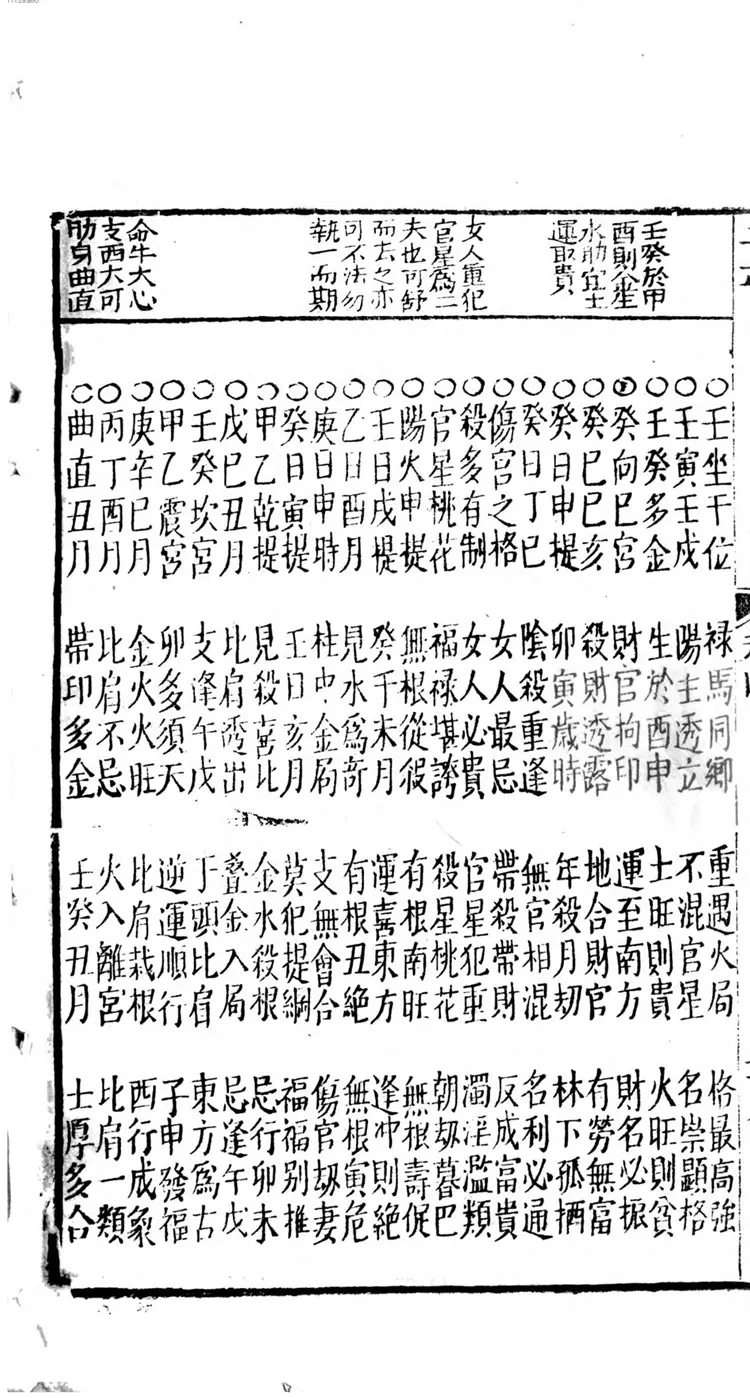 壬癸於甲
酉則金生
水助宜土
運取貴
女人重犯
官星爲二
夫也可舒
而去之亦
可不法勿
執一而期
命牛大心
支酉大可
助身曲直
○壬坐干位 禄馬同鄉 重遇火局 格最高強
○壬寅壬戌 陽主透立 不混官星 名崇顯格
○壬癸多金 生於酉申 土旺則貴 火旺則貧
○癸向巳宮 財官拘印 運至南方 財名必振
○癸巳巳亥 殺財透露 地合財官 有勞無富
○癸日申提 卯寅歲時 年殺月劫 林下孤栖
○癸日丁巳 陰殺重逢 無官相混 名利必通
○傷宮之格 女人最忌 帶殺帶財 反成富貴
○殺多有制 女人必貴 官星犯重 濁淫濫類
○官星桃花 福禄堪誇 殺星桃花 朝劫暮巴
○陽火申提 無根從殺 有根南旺 無根壽促
○壬日戌提 癸干未月 運喜東方 逢冲則絶
○乙日酉月 見水爲奇 有根丑絶 無根寅危
○庚日申時 柱中金局 支無會合 傷官劫妻
○癸日寅提 壬日亥月 莫犯提綱 福福別推
○甲乙乾提 見殺喜比 金水殺根 忌行卯未
○戊巳丑月 比肩透出 叠金入局 忌逢午戊
○壬癸坎宮 支逢午戊 丁頭比肩 東方爲古
○甲乙震宮 卯多須夭 逆運順行 子申發福
○庚辛巳月 金火火旺 比肩栽根 西行成象
○丙丁酉月 比肩不忌 火入離宮 比肩一類
○曲直丑月 帶印多金 壬癸丑月 土厚多合